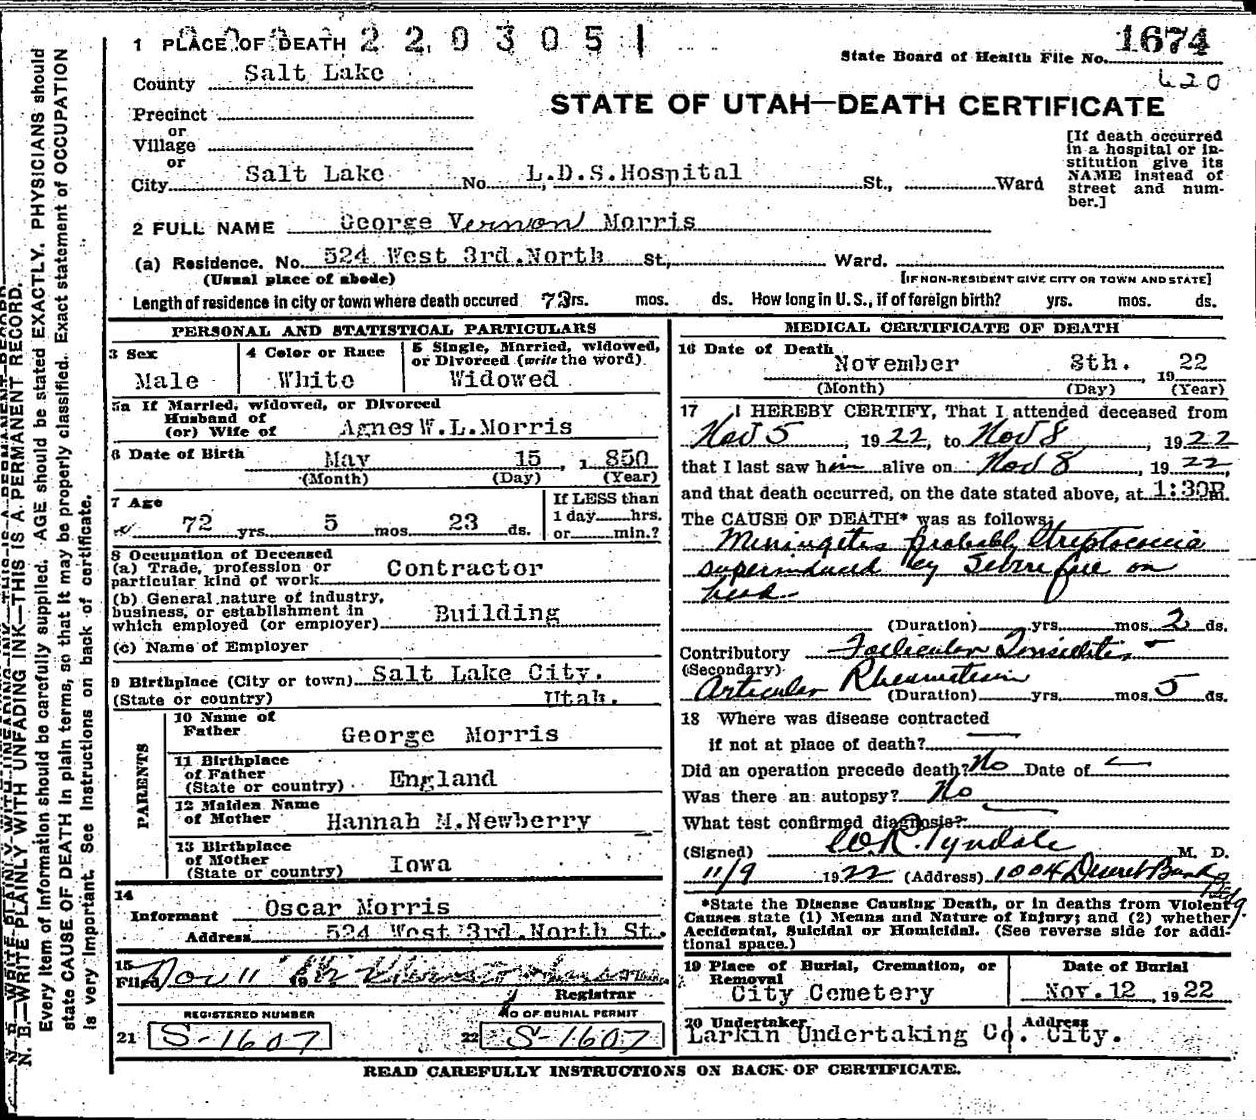 1 PLACE OF DEATH 2 2 0 3 0 5 1
State Board of Health File No. 1674
620
County Salt Lake
STATE OF UTAH—DEATH CERTIFICATE
Precinct
or
Village
or
City Salt Lake No. L.D.S.Hospital St., Ward
[If death occurred
in a hospital or in-
stitution give its
NAME instead of
street and num-
ber.]
2 FULL NAME George Vernon Morris
(a) Residence. No. 524 West 3rd.North St., Ward.
(Usual place of abode) [IF NON-RESIDENT GIVE CITY OR TOWN AND STATE]
Length of residence in city or town where death occured 72rs. mos. ds. How long in U.S., if of foreign birth? yrs. mos. ds.
PERSONAL AND STATISTICAL PARTICULARS
3 Sex
Male
4 Color or Race
White
5 Single, Married, widowed,
or Divorced (write the word)
Widowed
5a If Married, widowed, or Divorced
Husband of
(or) Wife of Agnes W.L.Morris
6 Date of Birth May 15, 1850
(Month) (Day) (Year)
7 Age
72 yrs. 5 mos. 23 ds.
If LESS than
1 day hrs.
or min.?
8 Occupation of Deceased
(a) Trade, profession or
particular kind of work Contractor
(b) General nature of industry,
business, or establishment in
which employed (or employer) Building
(c) Name of Employer
9 Birthplace (City or town) Salt Lake City.
(State or country) Utah.
PARENTS
10 Name of
Father George Morris
11 Birthplace
of Father
(State or country) England
12 Maiden Name
of Mother Hannah M.Newberry
13 Birthplace
of Mother
(State or country) Iowa
14
Informant Oscar Morris
Address 524 West 3rd.North St.
15
Filed Nov 11
Registrar
REGISTERED NUMBER
21 S-1607
NO OF BURIAL PERMIT
22 S-1607
MEDICAL CERTIFICATE OF DEATH
16 Date of Death
November 8th. 1922
(Month) (Day) (Year)
17 I HEREBY CERTIFY, That I attended deceased from
Nov 5, 1922, to Nov 8, 1922
that I last saw him alive on Nov 8, 1922,
and that death occurred, on the date stated above, at 1:30P.m.
The CAUSE OF DEATH* was as follows:
Meningitis probably Streptococcia
superinduced by Severe on
head
(Duration) yrs. mos. 2 ds.
Contributory Follicular Tonsilitis -
(Secondary)
Articular Rheumatism
(Duration) yrs. mos. 5 ds.
18 Where was disease contracted
if not at place of death?
Did an operation precede death? No Date of
Was there an autopsy? No
What test confirmed diagnosis?
(Signed) W.R. Tyndale M. D.
11/9 1922 (Address) 1004 Deseret Bank Bldg.
*State the Disease Causing Death, or in deaths from Violent
Causes state (1) Means and Nature of Injury; and (2) whether
Accidental, Suicidal or Homicidal. (See reverse side for addi-
tional space.)
19 Place of Burial, Cremation, or
Removal
City Cemetery
Date of Burial
Nov. 12, 1922
20 Undertaker
Larkin Undertaking Co.
Address
City.
READ CAREFULLY INSTRUCTIONS ON BACK OF CERTIFICATE.
N. B.—WRITE PLAINLY WITH UNFADING INK—THIS IS A PERMANENT RECORD.
Every item of information should be carefully supplied. AGE should be stated EXACTLY. PHYSICIANS should
state CAUSE OF DEATH in plain terms, so that it may be properly classified. Exact statement of OCCUPATION
is very important. See instructions on back of certificate.